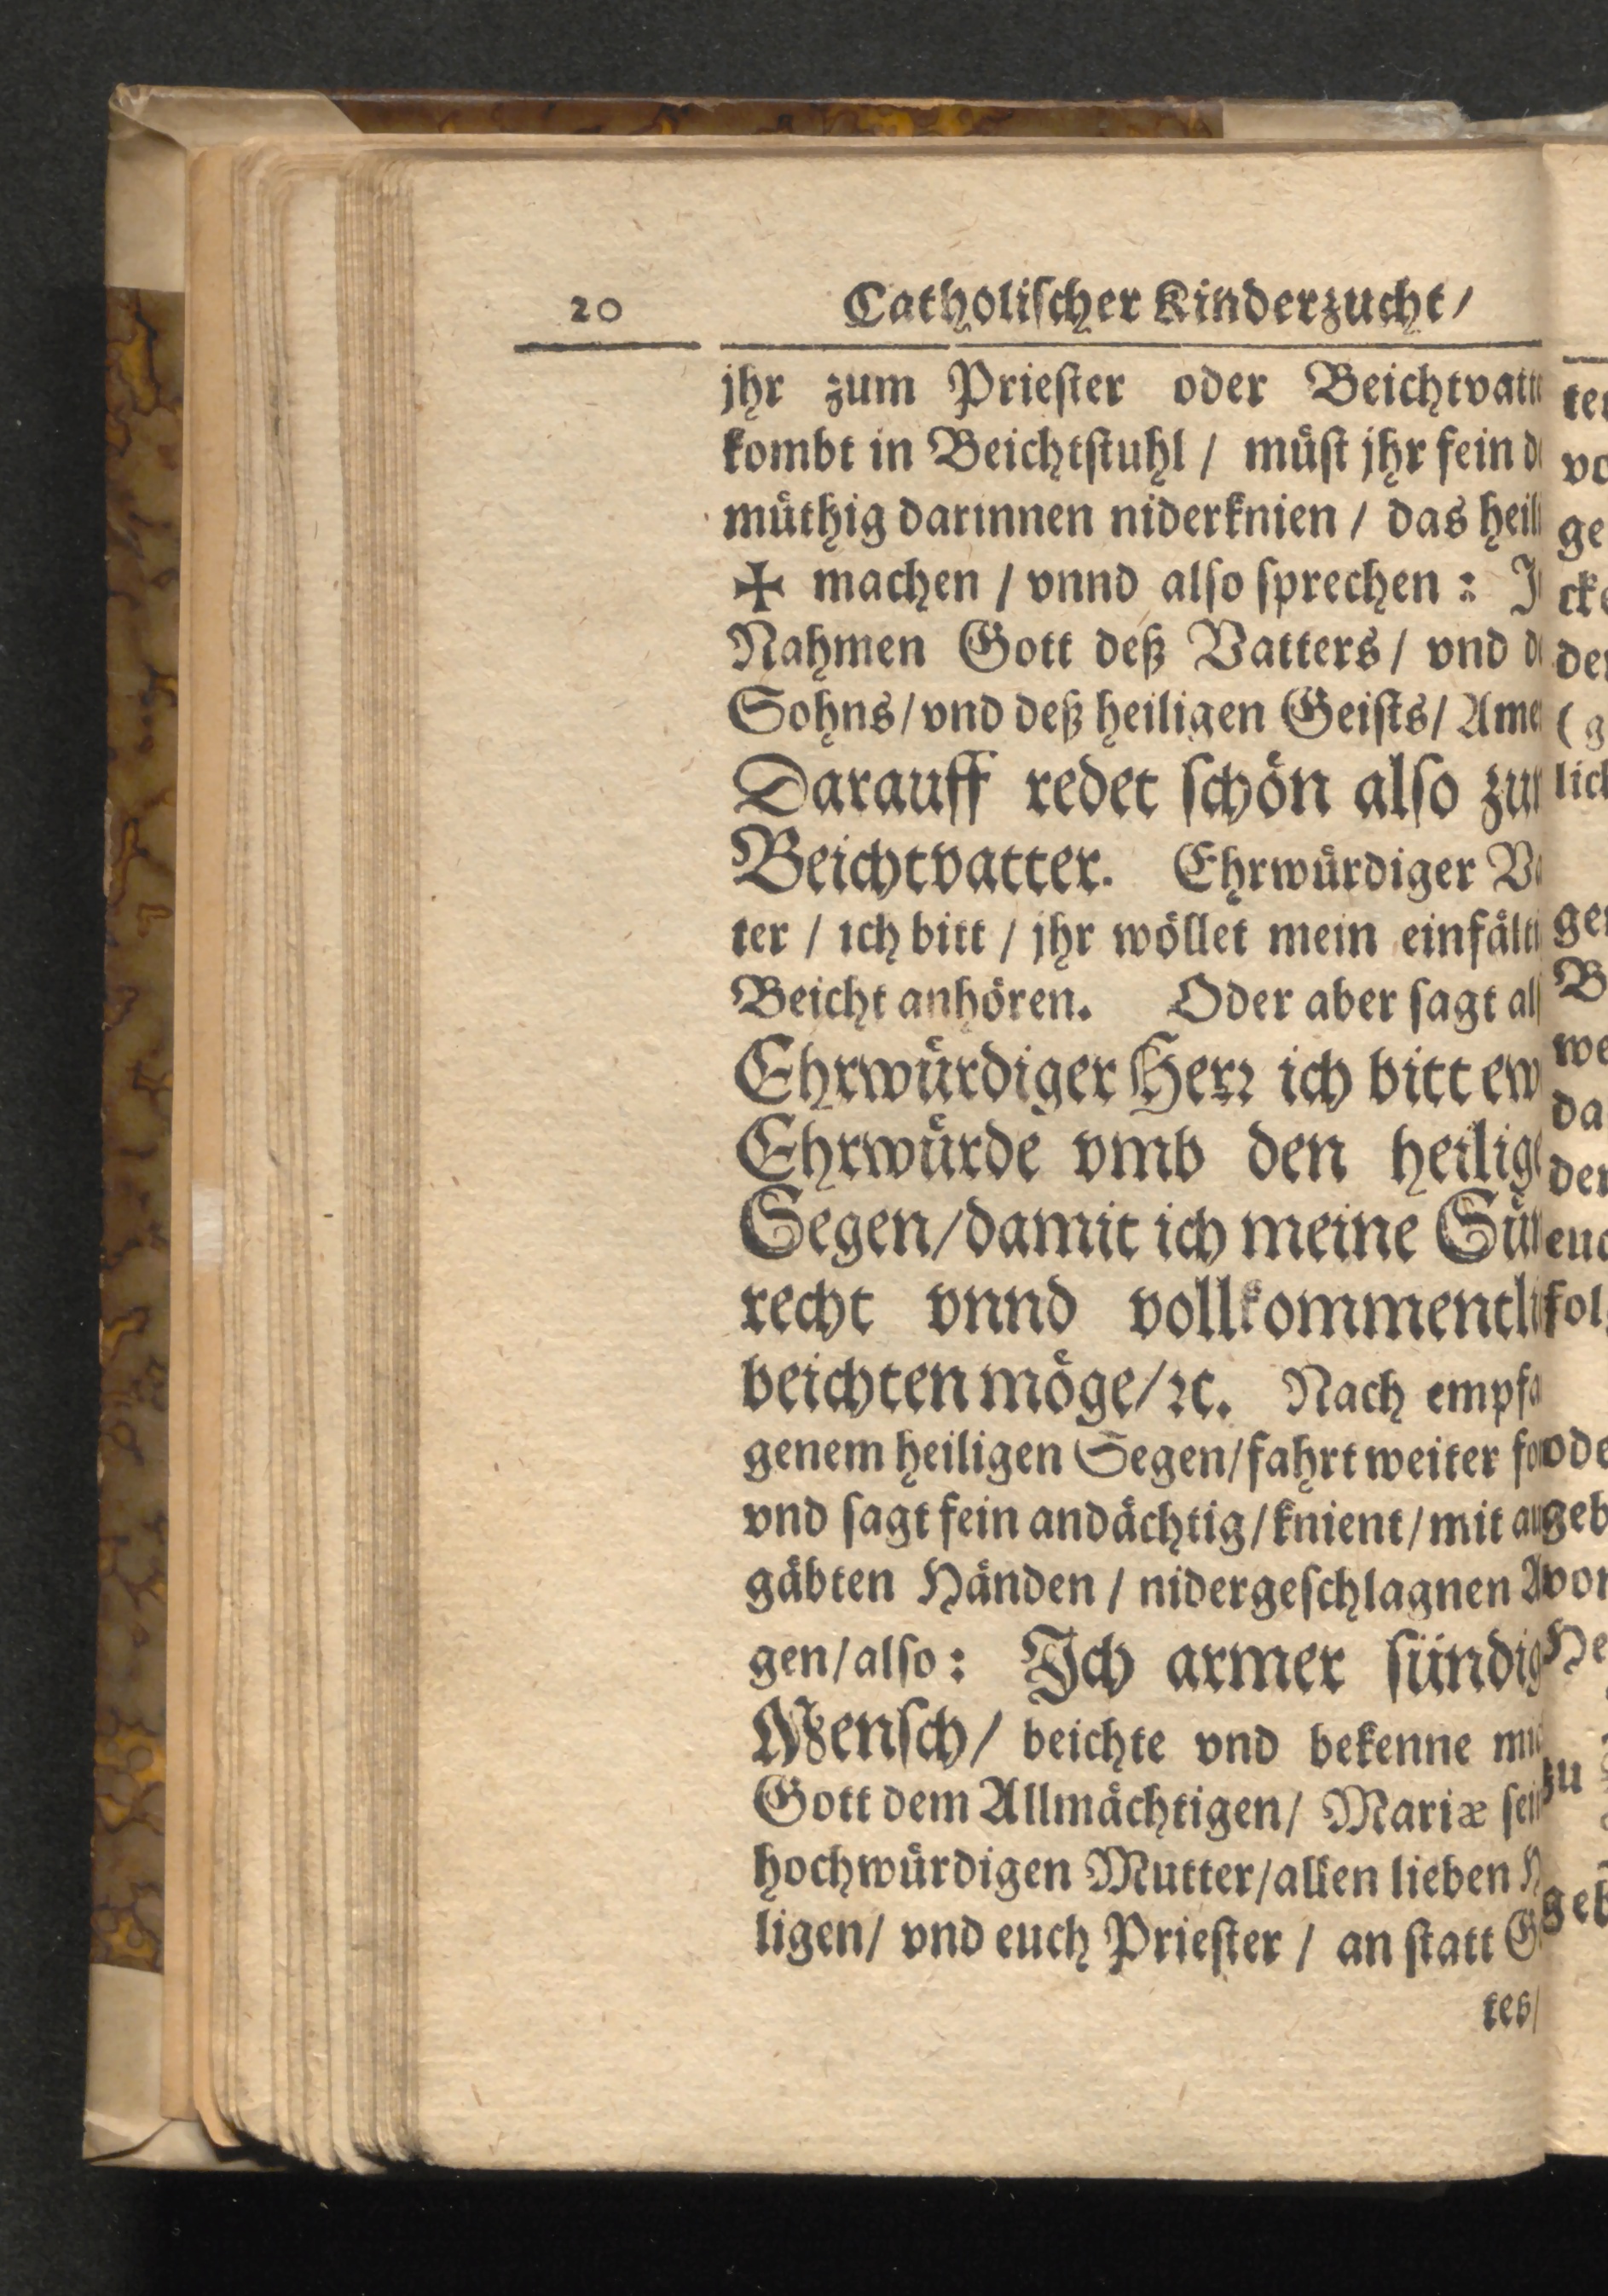 20 Catholischer Kinderzucht/
jhr zum Priester oder
kombt in Beichtstuhl / müst jhr fein
müthig darinnen niderknien / das
✠ machen / vnnd also sprechen :
Nahmen Gott deß Vatters / vnd
Sohns/vnd deß heiligen Geists/
Darauff redet schön also
Beichtvatter. Ehrwürdiger
ter / ich bitt / jhr wöllet mein
Beicht anhören. Oder aber sagt
Ehrwürdiger Herr ich bitt
Ehrwürde vmb den
Segen/damit ich meine
recht vnnd
beichten möge/ꝛc. Nach
genem heiligen Segen/fahrt weiter
vnd sagt fein andächtig/knient/mit
gäbten Händen / nidergeschlagnen
gen/also: Ich armer
Mensch/ beichte vnd bekenne
Gott dem Allmächtigen/ Mariæ
hochwürdigen Mutter/allen lieben
ligen/ vnd euch Priester / an statt
tes/